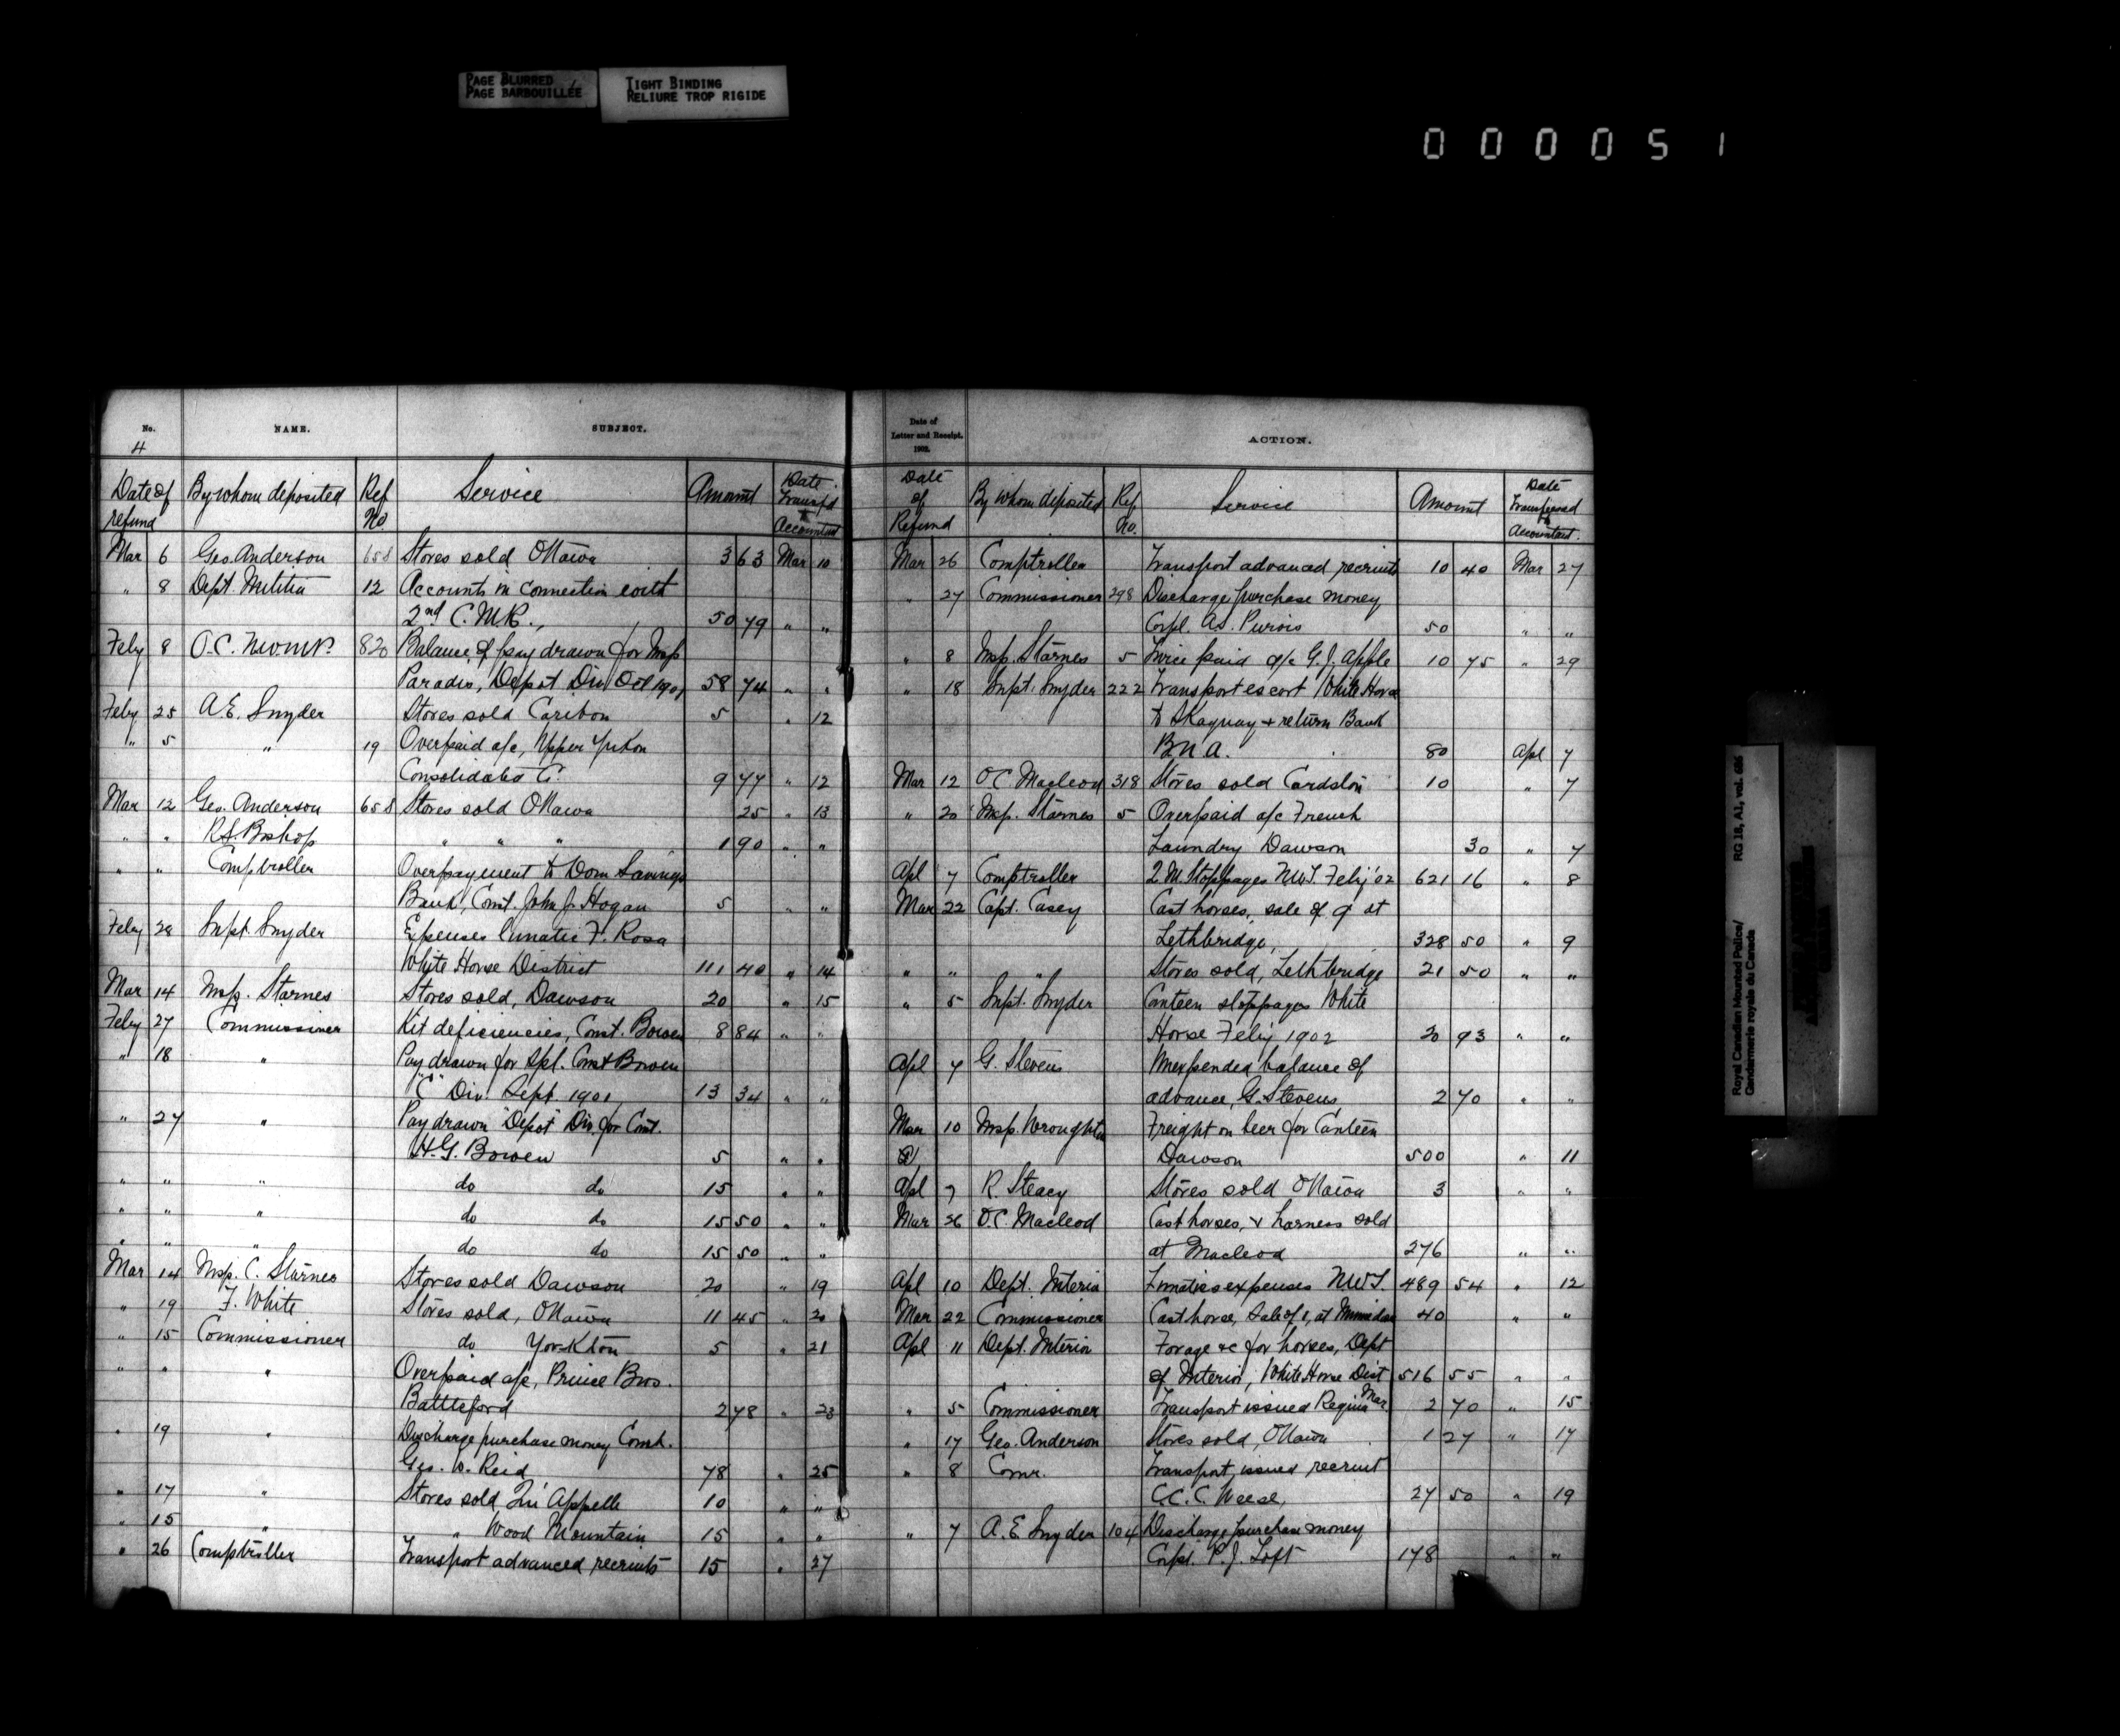 PAGE BLURRED
PAGE BARBOUILLÉE
TIGHT BINDING
RELIURE TROP RIGIDE
000051
No. NAME. SUBJECT.
4
Date of refund By whom deposited Ref No. Service Amount Date Transfd to Accountant
Mar 6 Geo. Anderson 658 Stores sold Ottawa 3 63 Mar 10
" 8 Dept. Militia 12 Accounts in connection with
2nd C.M.R., 50 79 " "
Feby 8 O.C. N.W.M.P. 820 Balance of pay drawn for Insp
Paradis, Depot Div Oct 1901 58 74 " "
Feby 25 A.E. Snyder Stores sold Caribou 5 " 12
" 5 " 19 Overpaid a/c, Upper Yukon
Consolidated Co. 9 77 " 12
Mar 12 Geo. Anderson 658 Stores sold Ottawa 25 " 13
" " R.S. Bishop " " " 1 90 " "
" " Comptroller Overpayment to Dom Savings
Bank, Const. John J. Hogan 5 " "
Feby 28 Supt. Snyder Expenses lunatic F. Rosa
White Horse District 111 40 " 14
Mar 14 Insp. Starnes Stores sold, Dawson 20 " 15
Feby 27 Commissioner Kit deficiencies, Const. Bowen 8 84 " "
" 18 " Pay drawn for Spl. Const Bowen
"C" Div. Sept. 1901 13 34 " "
" 27 " Pay drawn Depot Div. for Const.
H.G. Bowen 5 " "
" " " do do 15 " "
" " " do do 15 50 " "
" " " do do 15 50 " "
Mar 14 Insp. C. Starnes Stores sold Dawson 20 " 19
" 19 F. White Stores sold, Ottawa 11 45 " 20
" 15 Commissioner do Yorkton 5 " 21
" " " Overpaid a/c, Prince Bros.
Battleford 2 78 " 23
" 19 " Discharge purchase money Const.
Geo. D. Reid 78 " 25
" 17 " Stores sold Qu'Appelle 10 " "
" 15 " " Wood Mountain 15 " "
" 26 Comptroller Transport advanced recruits 15 " 27
Date of Letter and Receipt. 1902. ACTION.
Date of Refund By whom deposited Ref. No. Service Amount Date Transferred to Accountant.
Mar 26 Comptroller Transport advanced recruits 10 40 Mar 27
" 27 Commissioner 298 Discharge purchase money
Corpl. A.S. Purvis 50 " "
" 8 Insp. Starnes 5 Twice paid a/c G.J. Apple 10 75 " 29
" 18 Supt. Snyder 222 Transport escort White Horse
to Skaguay & return Bank
B.N.A. 80 Apl 7
Mar 12 O.C. Macleod 318 Stores sold Cardston 10 " 7
" 20 Insp. Starnes 5 Overpaid a/c French
Laundry Dawson 30 " 7
Apl 7 Comptroller 2 M. Stoppages N.W.T. Feby '02 621 16 " 8
Mar 22 Capt. Casey Cast horses, sale of 9 at
Lethbridge, 328 50 " 9
" " " Stores sold, Lethbridge 21 50 " "
" 5 Supt. Snyder Canteen stoppages White
Horse Feby 1902 20 93 " "
Apl 7 G. Stevens Unexpended balance of
advance, G. Stevens 2 70 " "
Mar 10 Insp. Wroughton Freight on beer for Canteen
Dawson 500 " 11
Apl 7 R. Steacy Stores sold Ottawa 3 " "
Mar 26 O.C. Macleod Cast horses, & harness sold
at Macleod 276 " "
Apl 10 Dept. Interior Lunatics expenses N.W.T. 489 54 " 12
Mar 22 Commissioner Cast horse, Sale of 1, at 40 " "
Apl 11 Dept. Interior Forage &c for horses, Dept
of Interior, White Horse Dist 516 55 " "
" 5 Commissioner Transport issued Regina Mar. 2 70 " 15
" 17 Geo. Anderson Stores sold, Ottawa 1 27 " 17
" 8 Comr. Transport issued recruit
C.C.C. Weese, 27 50 " 19
" 7 A.E. Snyder 104 Discharge purchase money
Corpl. P.J. Loft 178 " "
Royal Canadian Mounted Police/ RG 18, A1, vol. 606
Gendarmerie royale du Canada